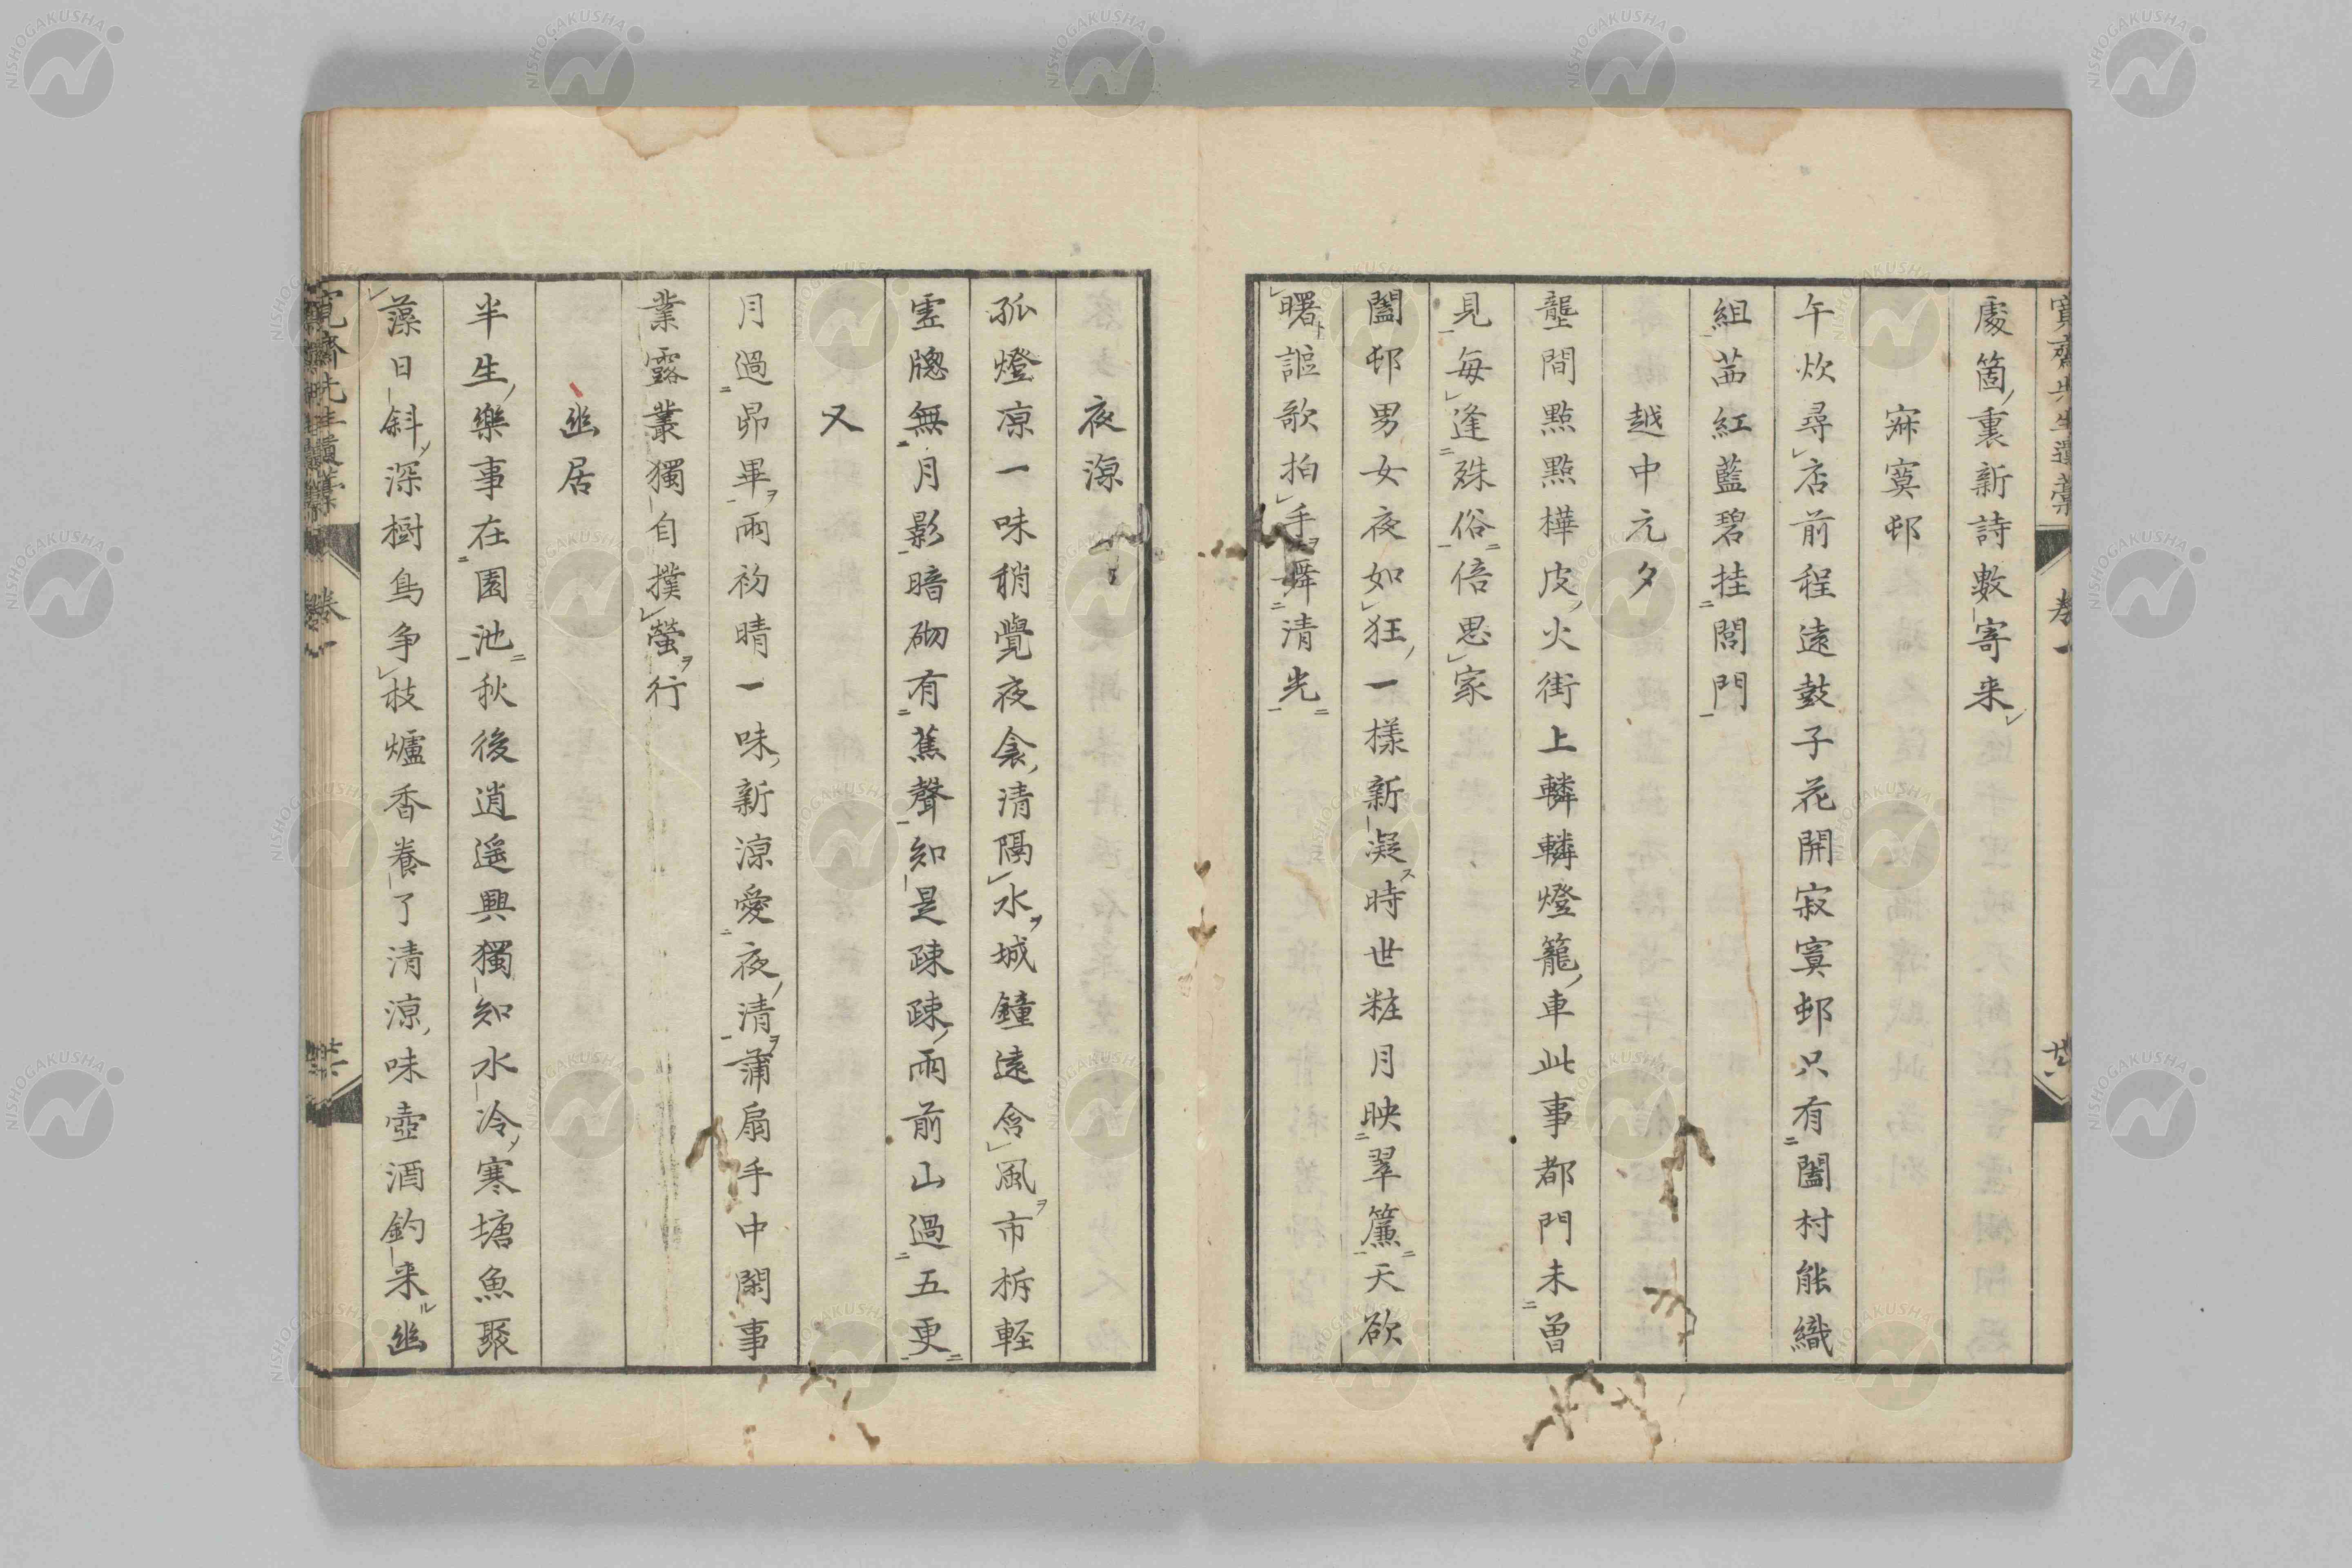 寛齋先生遺藁
卷一
處箇裏新詩數寄来
寂寞邨
午炊尋店前程遠鼓子花開寂寞邨只有闔村能織
組茜紅藍碧挂閭門
越中元夕
壟間點點樺皮火街上轔轔燈籠車此事都門未曽
見每逢殊俗倍思家
闔邨男女夜如狂一樣新凝時世粧月映翠簾天欲
曙謳歌拍手舞清光
夜涼
孤燈凉一味稍覺夜衾清隔水城鐘遠含風市柝軽
虚牕無月影暗砌有蕉聲知是疎疎雨前山過五更
又
月過昴畢雨初晴一味新涼愛夜清蒲扇手中閑事
業露叢獨自撲螢行
幽居
半生樂事在園池秋後逍遥興獨知水冷寒塘魚聚
藻日斜深樹鳥争枝爐香養了清涼味壺酒釣来幽
寛齋先生遺藁
卷一